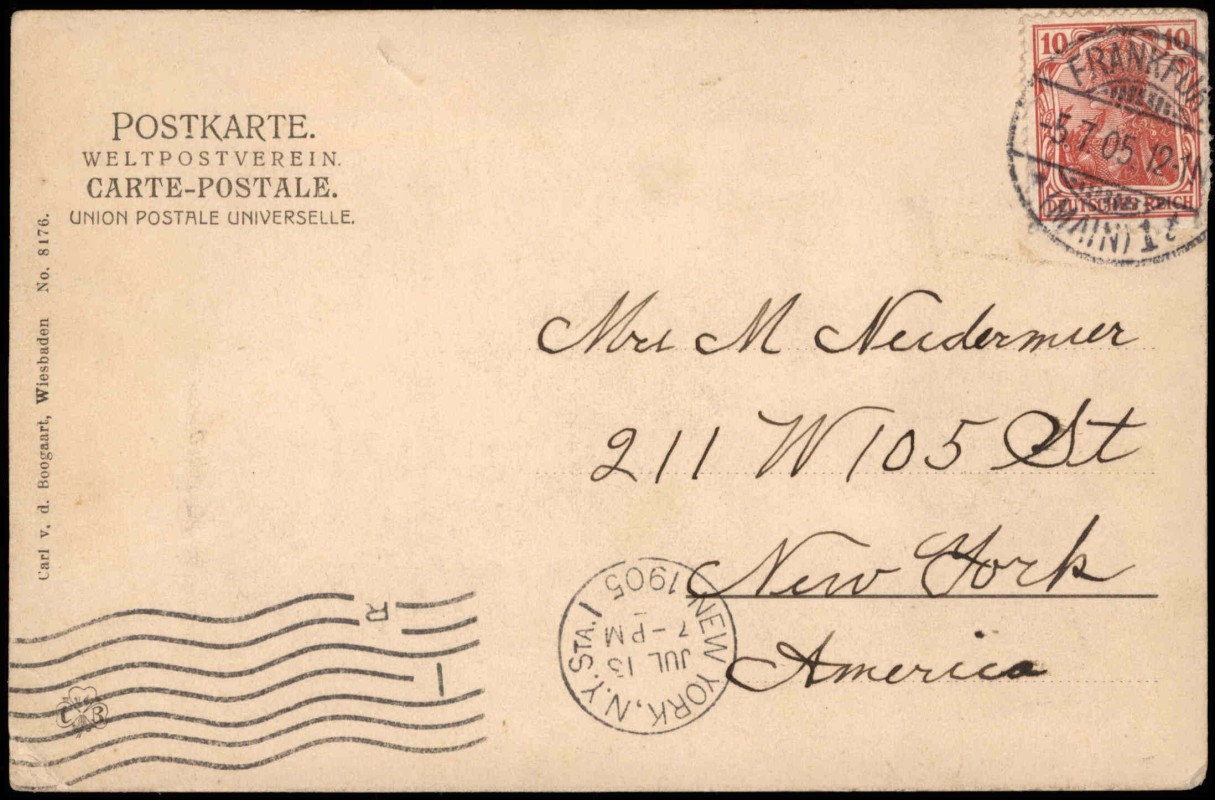 POSTKARTE.
WELTPOSTVEREIN.
CARTE-POSTALE.
UNION POSTALE UNIVERSELLE.
Carl v. d. Boogaart, Wiesbaden No. 8176.
10 10
DEUTSCHES REICH
FRANKFUR
5.7.05 12-1
(MAIN) 1
Mrs M Neidermier
211 W 105 St
New York
America
NEW YORK, N.Y. STA.
JUL 13
7-PM
1905
R
C B